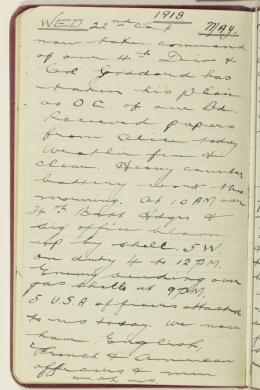 1918
WED 22nd Cont MAY.
now taken command
of our 4th Divis &
Col Goddard has
taken his place
as OC of our Bd
Recieved papers
from Alice today.
Weather fine &
clear. Heavy counter
battery work this
morning. At 10 AM our
34th Batt Hdqrs &
sig office blown
up by shell. 5 W.
on duty 4 to 12 PM.
Enemy sending over
gas shells at 9 PM.
5 U.S.A officers attached
to us today. We now
have English,
French & American
officers & men
with us.